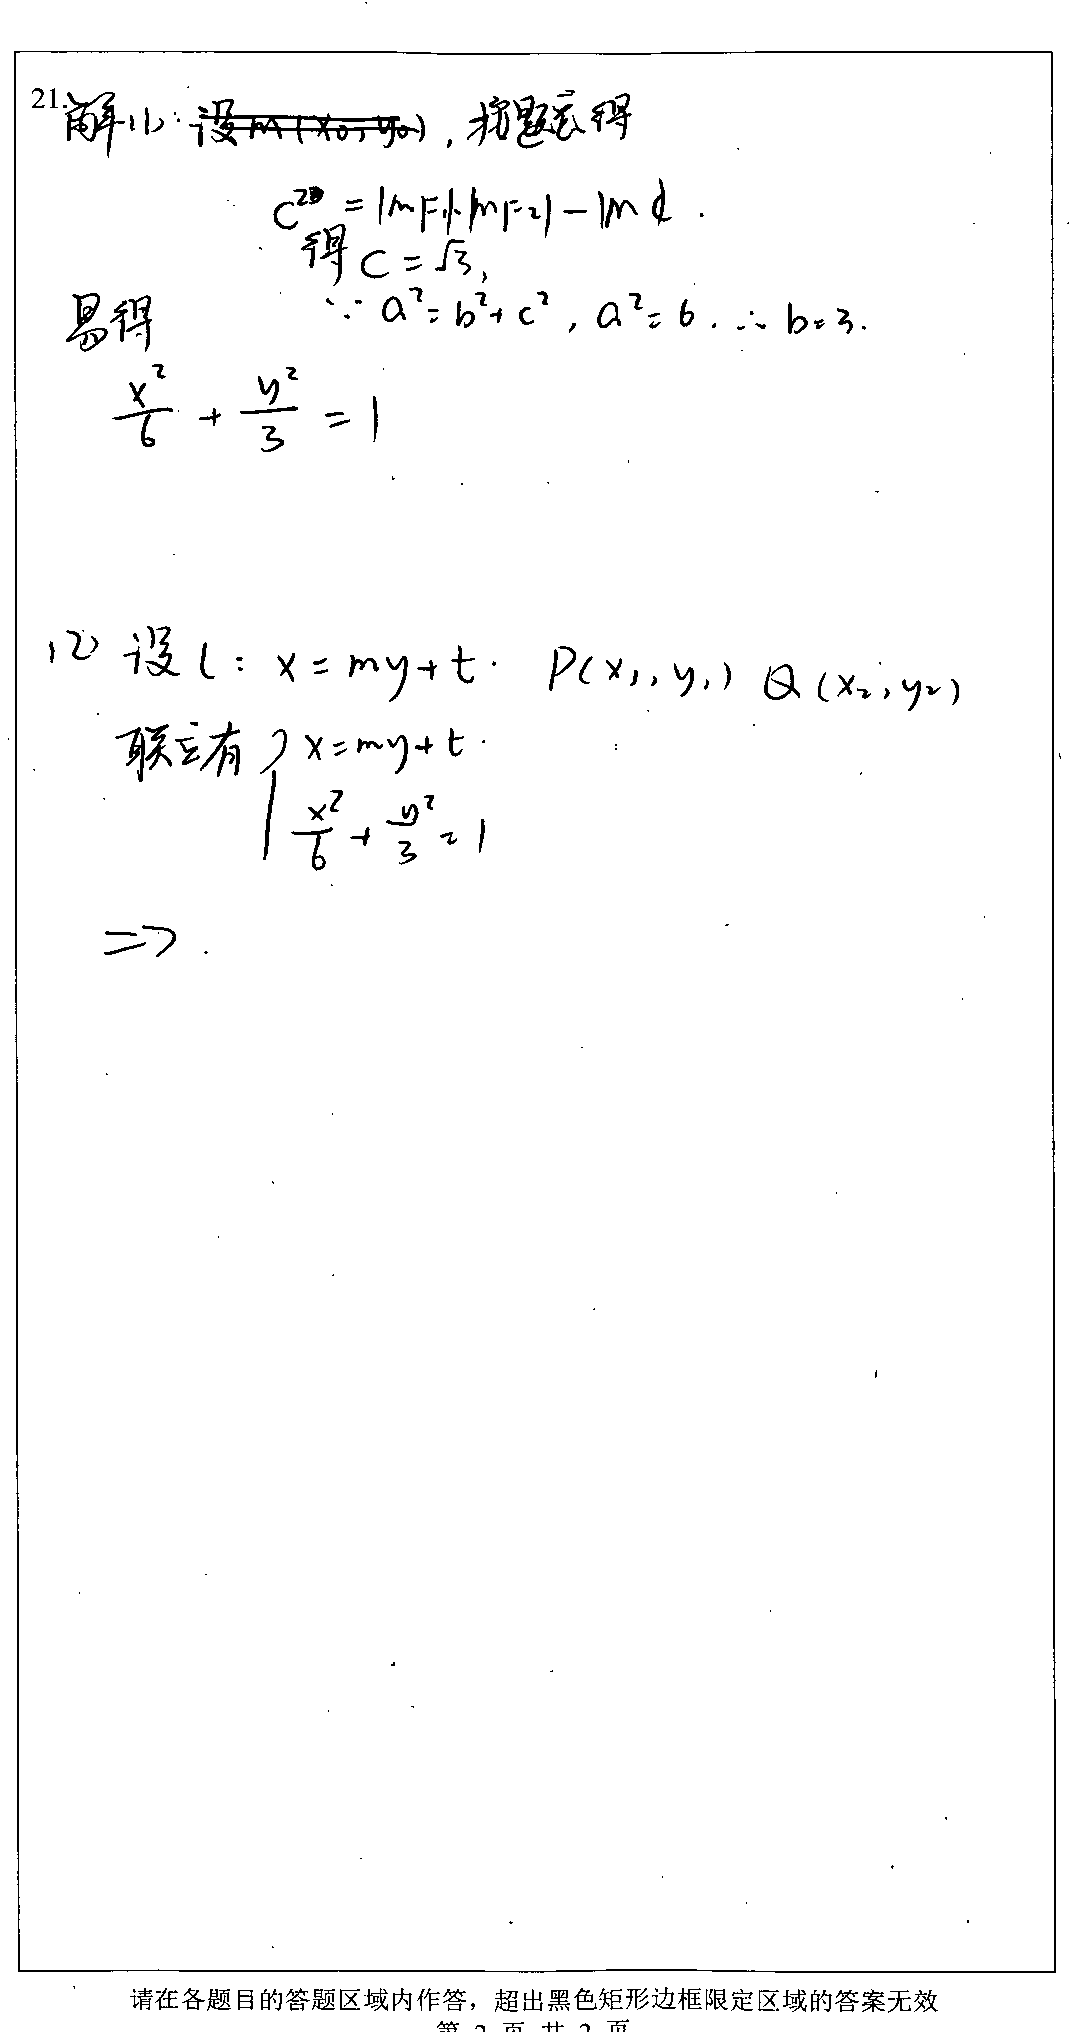 21.
解(1): 设M(x₀,y₀), 按题意得
c² = |MF₁|·|MF₂| - |M
得 c = √3,
易得 ∵ a² = b² + c², a² = 6. ∴ b = 3.
x²/6 + y²/3 = 1
(2) 设 l: x = my + t. P(x₁, y₁) Q(x₂, y₂)
联立有 { x = my + t.
x²/6 + y²/3 = 1
=> .
请在各题目的答题区域内作答，超出黑色矩形边框限定区域的答案无效
第 2 页 共 2 页